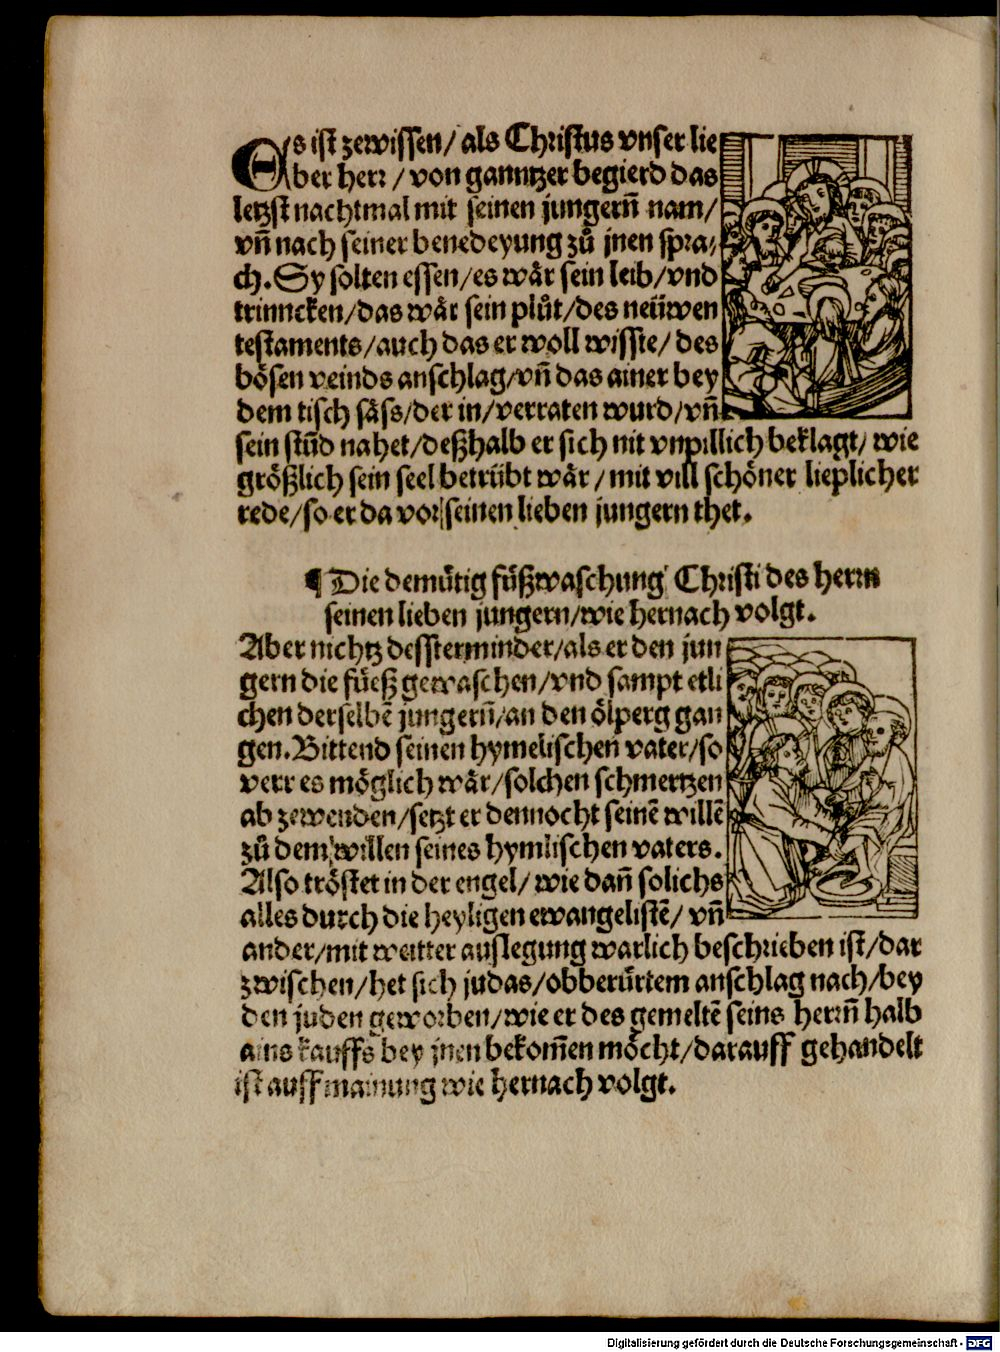 Es ist zewissen/ als Christus vnser lie
ber herr/ von ganntzer begierd das
letzst nachtmal mit seinen jungern̄ nam/
vn̄ nach seiner benedeyung zů jnen spra/
ch. Sy solten essen/ es wår sein leib/ vnd
trinncken/ das wår sein plůt/ des neüwen
testaments/ auch das er woll wisste/ des
bösen veinds anschlag/ vn̄ das ainer bey
dem tisch såss/ der in/ verraten wurd/ vn̄
sein stūd nahet/ deßhalb er sich nit vnpillich beklagt/ wie
größlich sein seel betrübt wår/ mit vill schöner lieplicher
rede/ so er da vor seinen lieben jungern thet.
¶ Die demütig füßwaschung Christi des herrn
seinen lieben jungern/ wie hernach volgt.
Aber nichtz dessterminder/ als er den jun
gern die füeß gewaschen/ vnd sampt etli
chen derselbē jungern̄/ an den ölperg gan
gen. Bittend seinen hymelischen vater/ so
verr es möglich wår/ solchen schmertzen
ab zewenden/ setzt er dennocht seinē willē
zů dem willen seines hymlischen vaters.
Also tröstet in der engel/ wie dan̄ solichs
alles durch die heyligen ewangelistē/ vn̄
ander/ mit weitter auslegung warlich beschrieben ist/ dar
zwischen/ het sich judas/ obberürtem anschlag nach/ bey
den juden geworben/ wie er des gemeltē seins herrn̄ halb
ains kauffs bey jnen bekom̄en möcht/ darauff gehandelt
ist auff mainung wie hernach volgt.
Digitalisierung gefördert durch die Deutsche Forschungsgemeinschaft - DFG